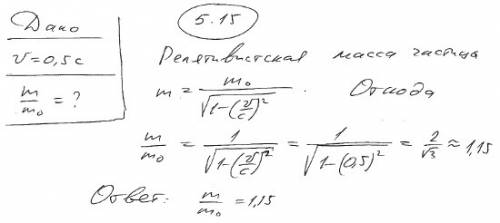 5.15
Дано
v = 0,5 c
m/m₀ = ?
Релятивистская масса частица
m = m₀/√(1-(v/c)²) . Откода
m/m₀ = 1/√(1-(v/c)²) = 1/√(1-(0,5)²) = 2/√3 ≈ 1,15
Ответ: m/m₀ = 1,15